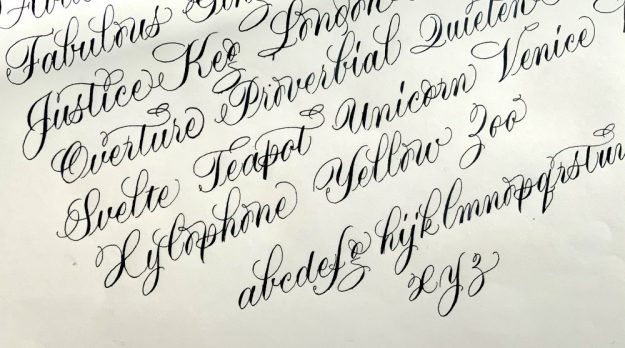 Fabulous
Justice Keg London
Overture Proverbial Quieten
Svelte Teapot Unicorn Venice
Xylophone Yellow Zoo
abcdefg hijklmnopqrstuv
xyz